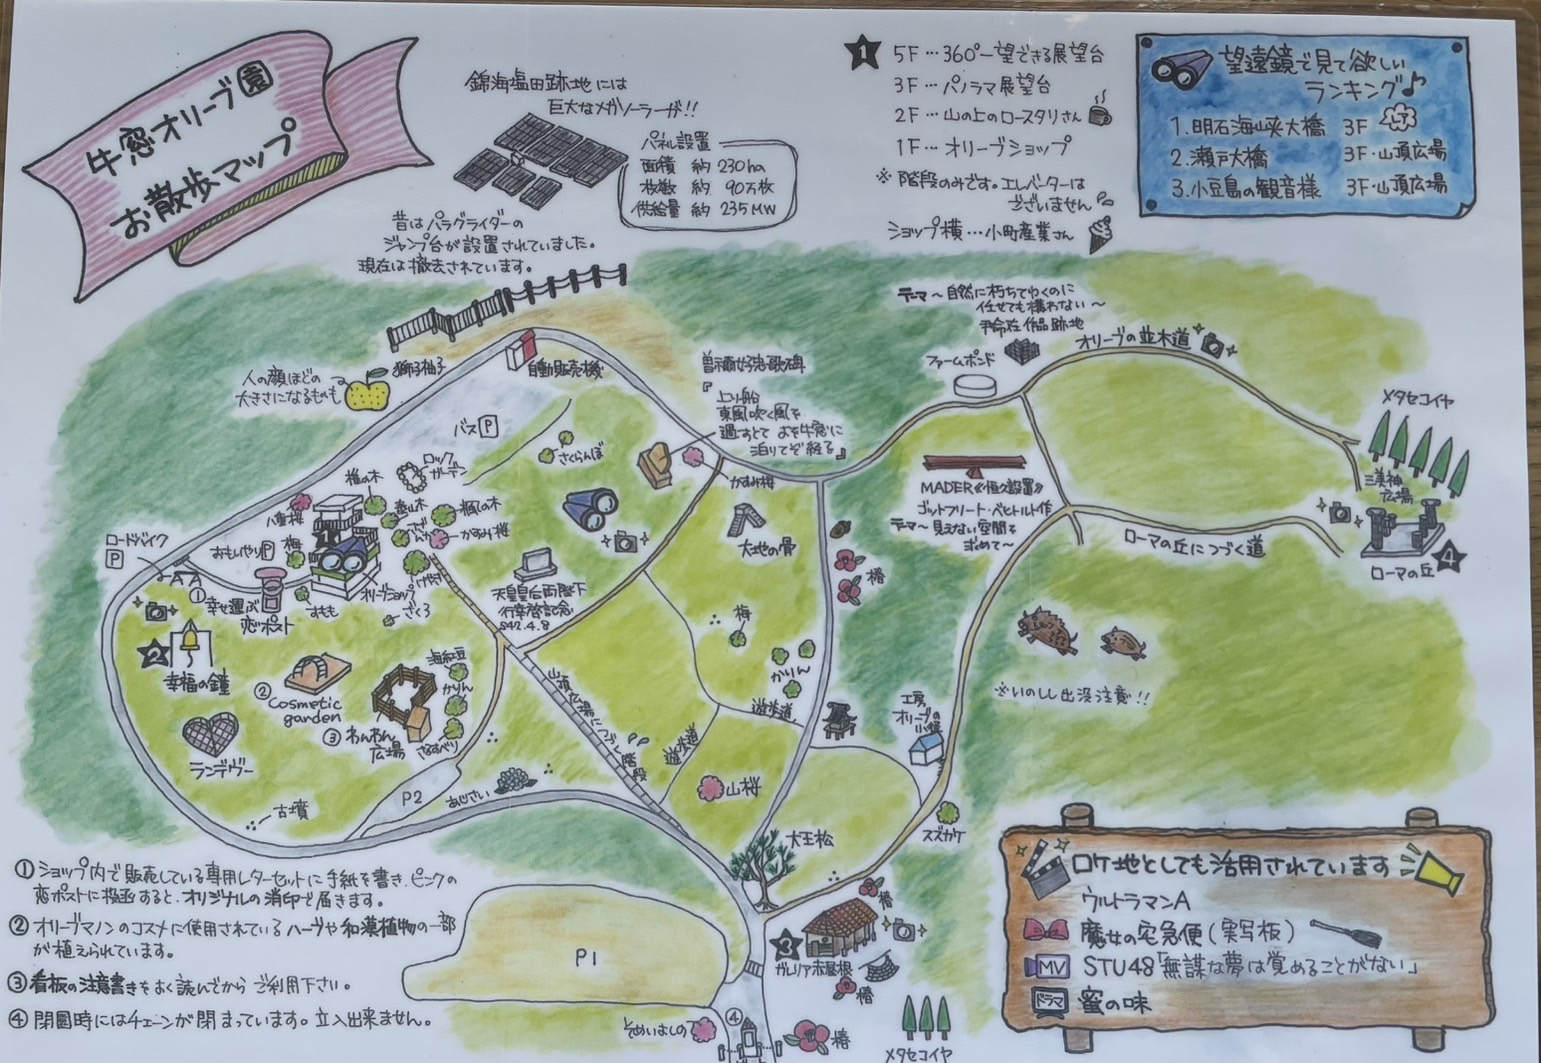 牛窓オリーブ園
お散歩マップ
錦海塩田跡地には
巨大なメガソーラーが!!
パネル設置
面積 約 230ha
枚数 約 90万枚
供給量 約 235MW
昔はパラグライダーの
ジャンプ台が設置されていました。
現在は撤去されています。
1
5F…360°一望できる展望台
3F…パノラマ展望台
2F…山の上のロースタリさん
1F…オリーブショップ
※階段のみです。エレベーターは
ございません
ショップ横…小町産業さん
望遠鏡で見て欲しい
ランキング♪
1.明石海峡大橋 3F
2.瀬戸大橋 3F・山頂広場
3.小豆島の観音様 3F・山頂広場
テーマ～自然に朽ちてゆくのに
任せても構わない～
作品跡地
ファームポンド
オリーブの並木道
メタセコイヤ
人の顔ほどの
大きさになるものも
獅子柚子
自動販売機
曽禰好忠歌碑
『上り船
東風吹く風を
過すとて よを牛窓に
泊りてぞ経る』
バスP
ロック
ガーデン
さくらんぼ
かすみ桜
大地の骨
MADER《恒久設置》
ゴットフリート・ベヒトルト作
テーマ～見えない空間を
求めて～
三美神
広場
ローマの丘につづく道
ローマの丘
4
ロードバイク
P
八重桜
おもいやりP
梅
かすみ桜
けやき
オリーブショップ
ざくろ
すもも
①
幸せ運ぶ
恋ポスト
天皇皇后両陛下
行幸啓記念
S42.4.8
椿
梅
かりん
2
幸福の鐘
②
Cosmetic
garden
海紅豆
かりん
③わんわん
広場
さるすべり
ランデヴー
古墳
P2
あじさい
山頂広場につづく階段
遊歩道
遊歩道
山桜
工房
オリーブの
小路
スズカケ
※いのしし出没注意!!
大王松
椿
3
ガレリア赤屋根
椿
P1
そめいよしの
④
椿
メタセコイヤ
①ショップ内で販売している専用レターセットに手紙を書き、ピンクの
恋ポストに投函すると、オリジナルの消印で届きます。
②オリーブマノンのコスメに使用されているハーブや和漢植物の一部
が植えられています。
③看板の注意書きをよく読んでからご利用下さい。
④閉園時にはチェーンが閉まっています。立入出来ません。
ロケ地としても活用されています
ウルトラマンA
魔女の宅急便(実写板)
MV STU48「無謀な夢は覚めることがない」
ドラマ 蜜の味